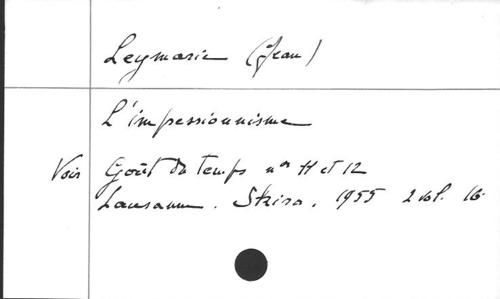 Leymarie (Jean)
L'impressionnisme
Voir Goût du temps nos 11 et 12
Lausanne. Skira. 1955 2 vol. 16.